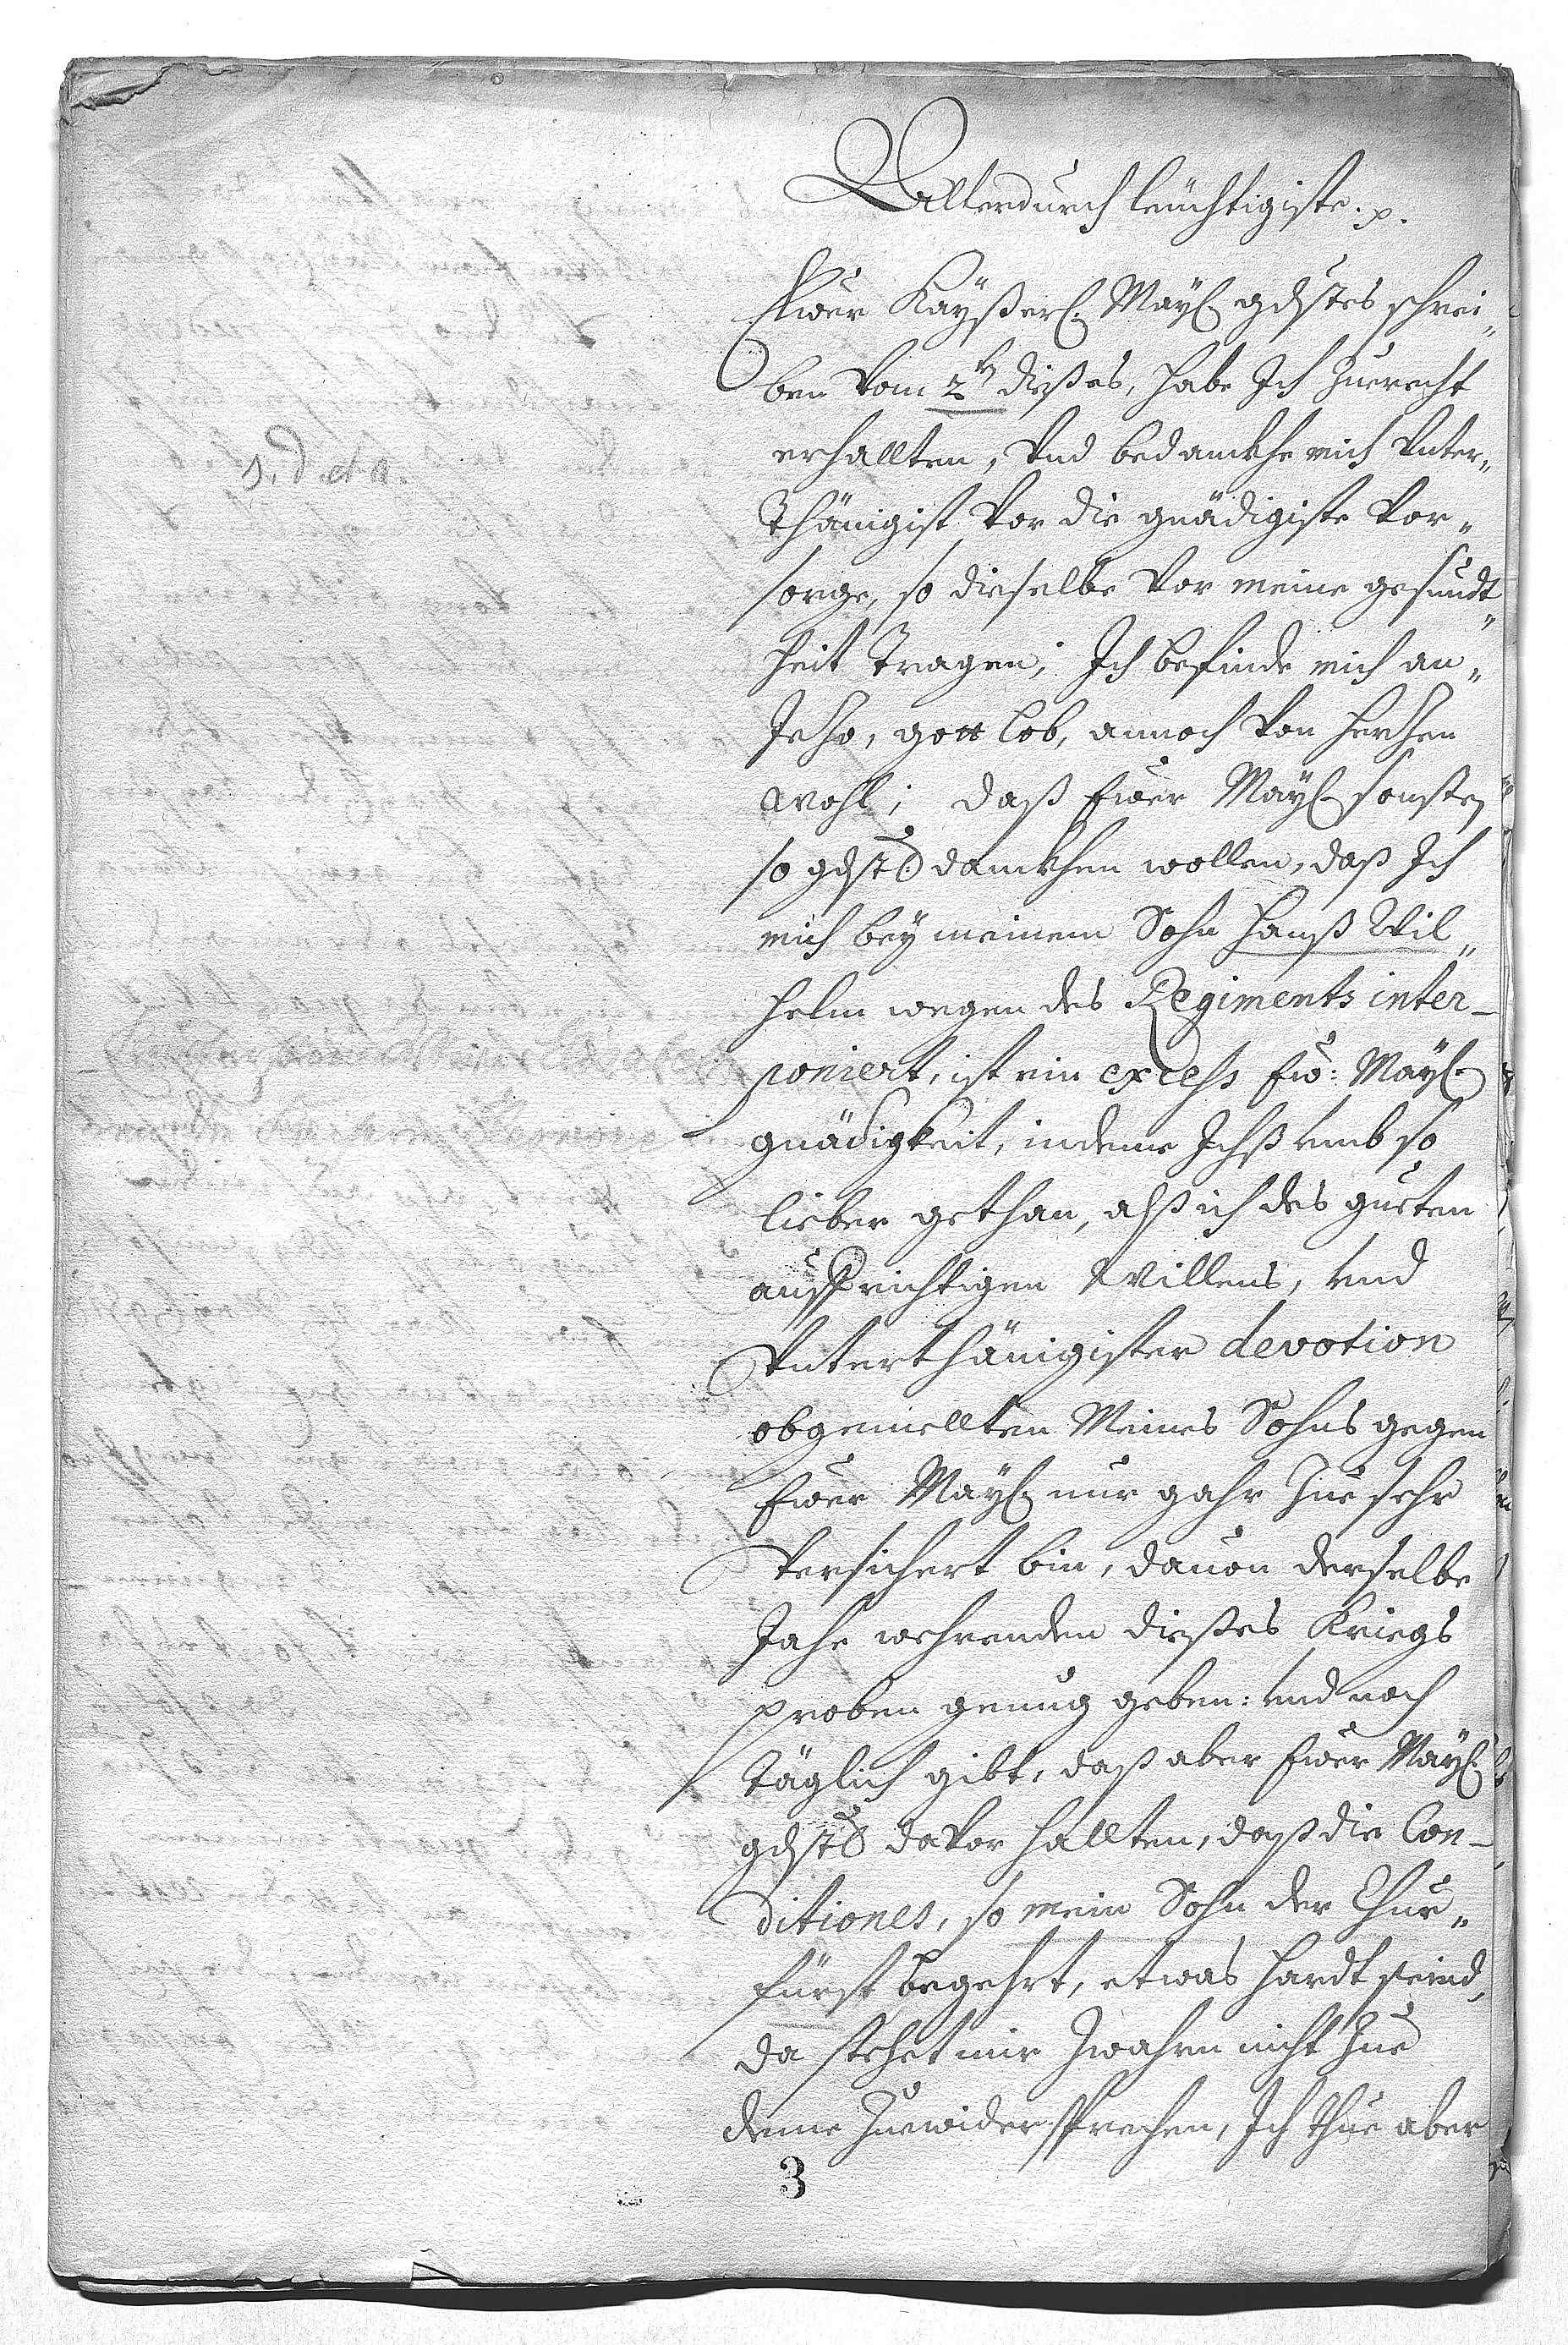 Allerdurchleüchtigiste. p.
Ewer Kayßerl. Mayl. gdstes schrei„
ben Vom 2t dißes, habe Ich Zuerecht
s. d. et a.
erhallten, Vnd bedanckhe mich Vnter„
Thänigist Vor die gnädigiste Vor„
sorge, so dieselbe Vor meine gesundt„
heit Tragen; Ich befinde mich an„
Jetzo, gott lob, annoch Von Hertzen
wohl; daß Ewer Mayl. sonsten
so gdst danckhen wollen, daß Ich
mich beÿ meinem Sohn Hanß Wil„
helm wegen des Regiments inter-
poniert, ist ein excess Ew: Mayl.
gnädigkeit, indeme Ichß vmb so
lieber gethan, alß ich des gueten
auffrichtigen Willens, vnd
Vnterthänigister devotion
obgemellten Meines Sohns gegen
Ewer Mayl. nur gahr Zue sehr
Versichert bin, dauon derselbe
Jahe wehrenden dießes Kriegs
proben genug geben: vnd noch
täglich gibt, daß aber Ewer Mayl.
gdst daVor hallten, daß die Con-
ditiones, so mein Sohn der Chur„
fürst begehrt, etwas hardt seind,
da stehet mir Zwahrn nicht Zue
deme Zuwidersprechen, Ich thue aber
3